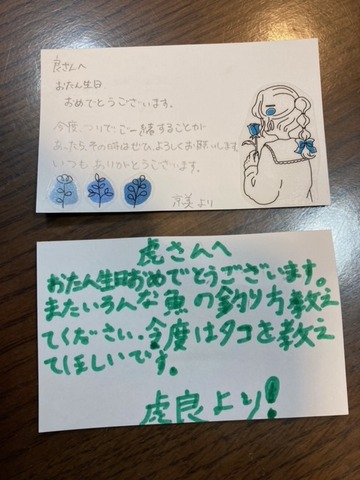 虎さんへ
おたん生日
おめでとうございます。
今度、つりで、ご一緒することが
あったら、その時はぜひ、よろしくお願いします。
いつも ありがとうございます。
京美より
虎さんへ
おたん生日おめでとうございます。
またいろんな魚の釣り方教え
てください。今度はタコを教え
てほしいです。
虎良より!